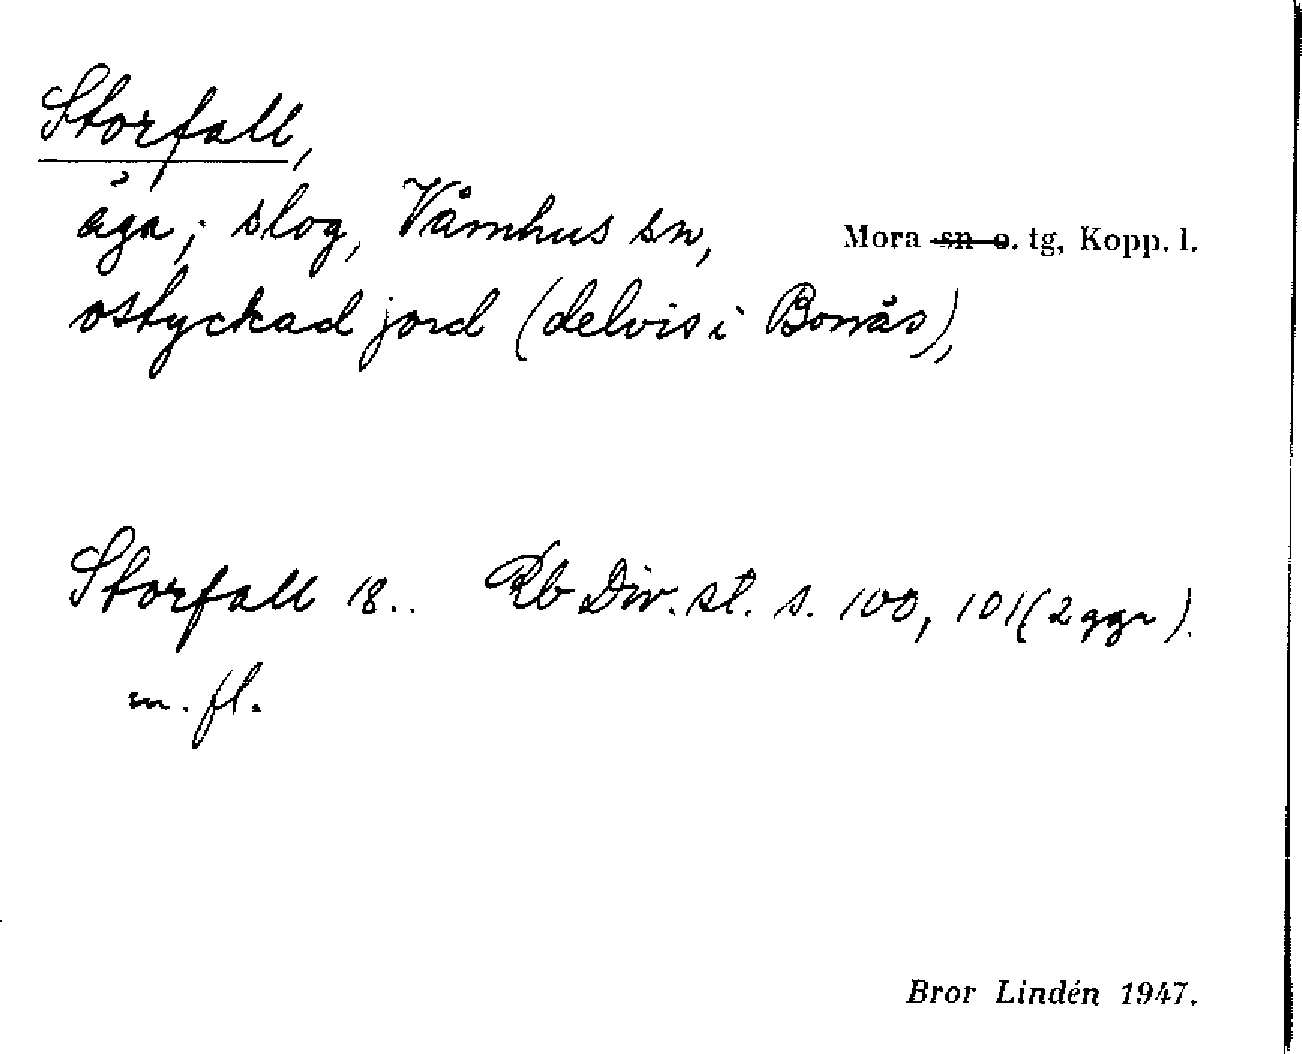 Storfall,
äga; slog, Våmhus sn,
Mora sn o. tg, Kopp. l.
ostyckad jord (delvis i Bonäs),
Storfall 18.. Rb Div. st. s. 100, 101 (2 ggr).
m. fl.
Bror Lindén 1947.